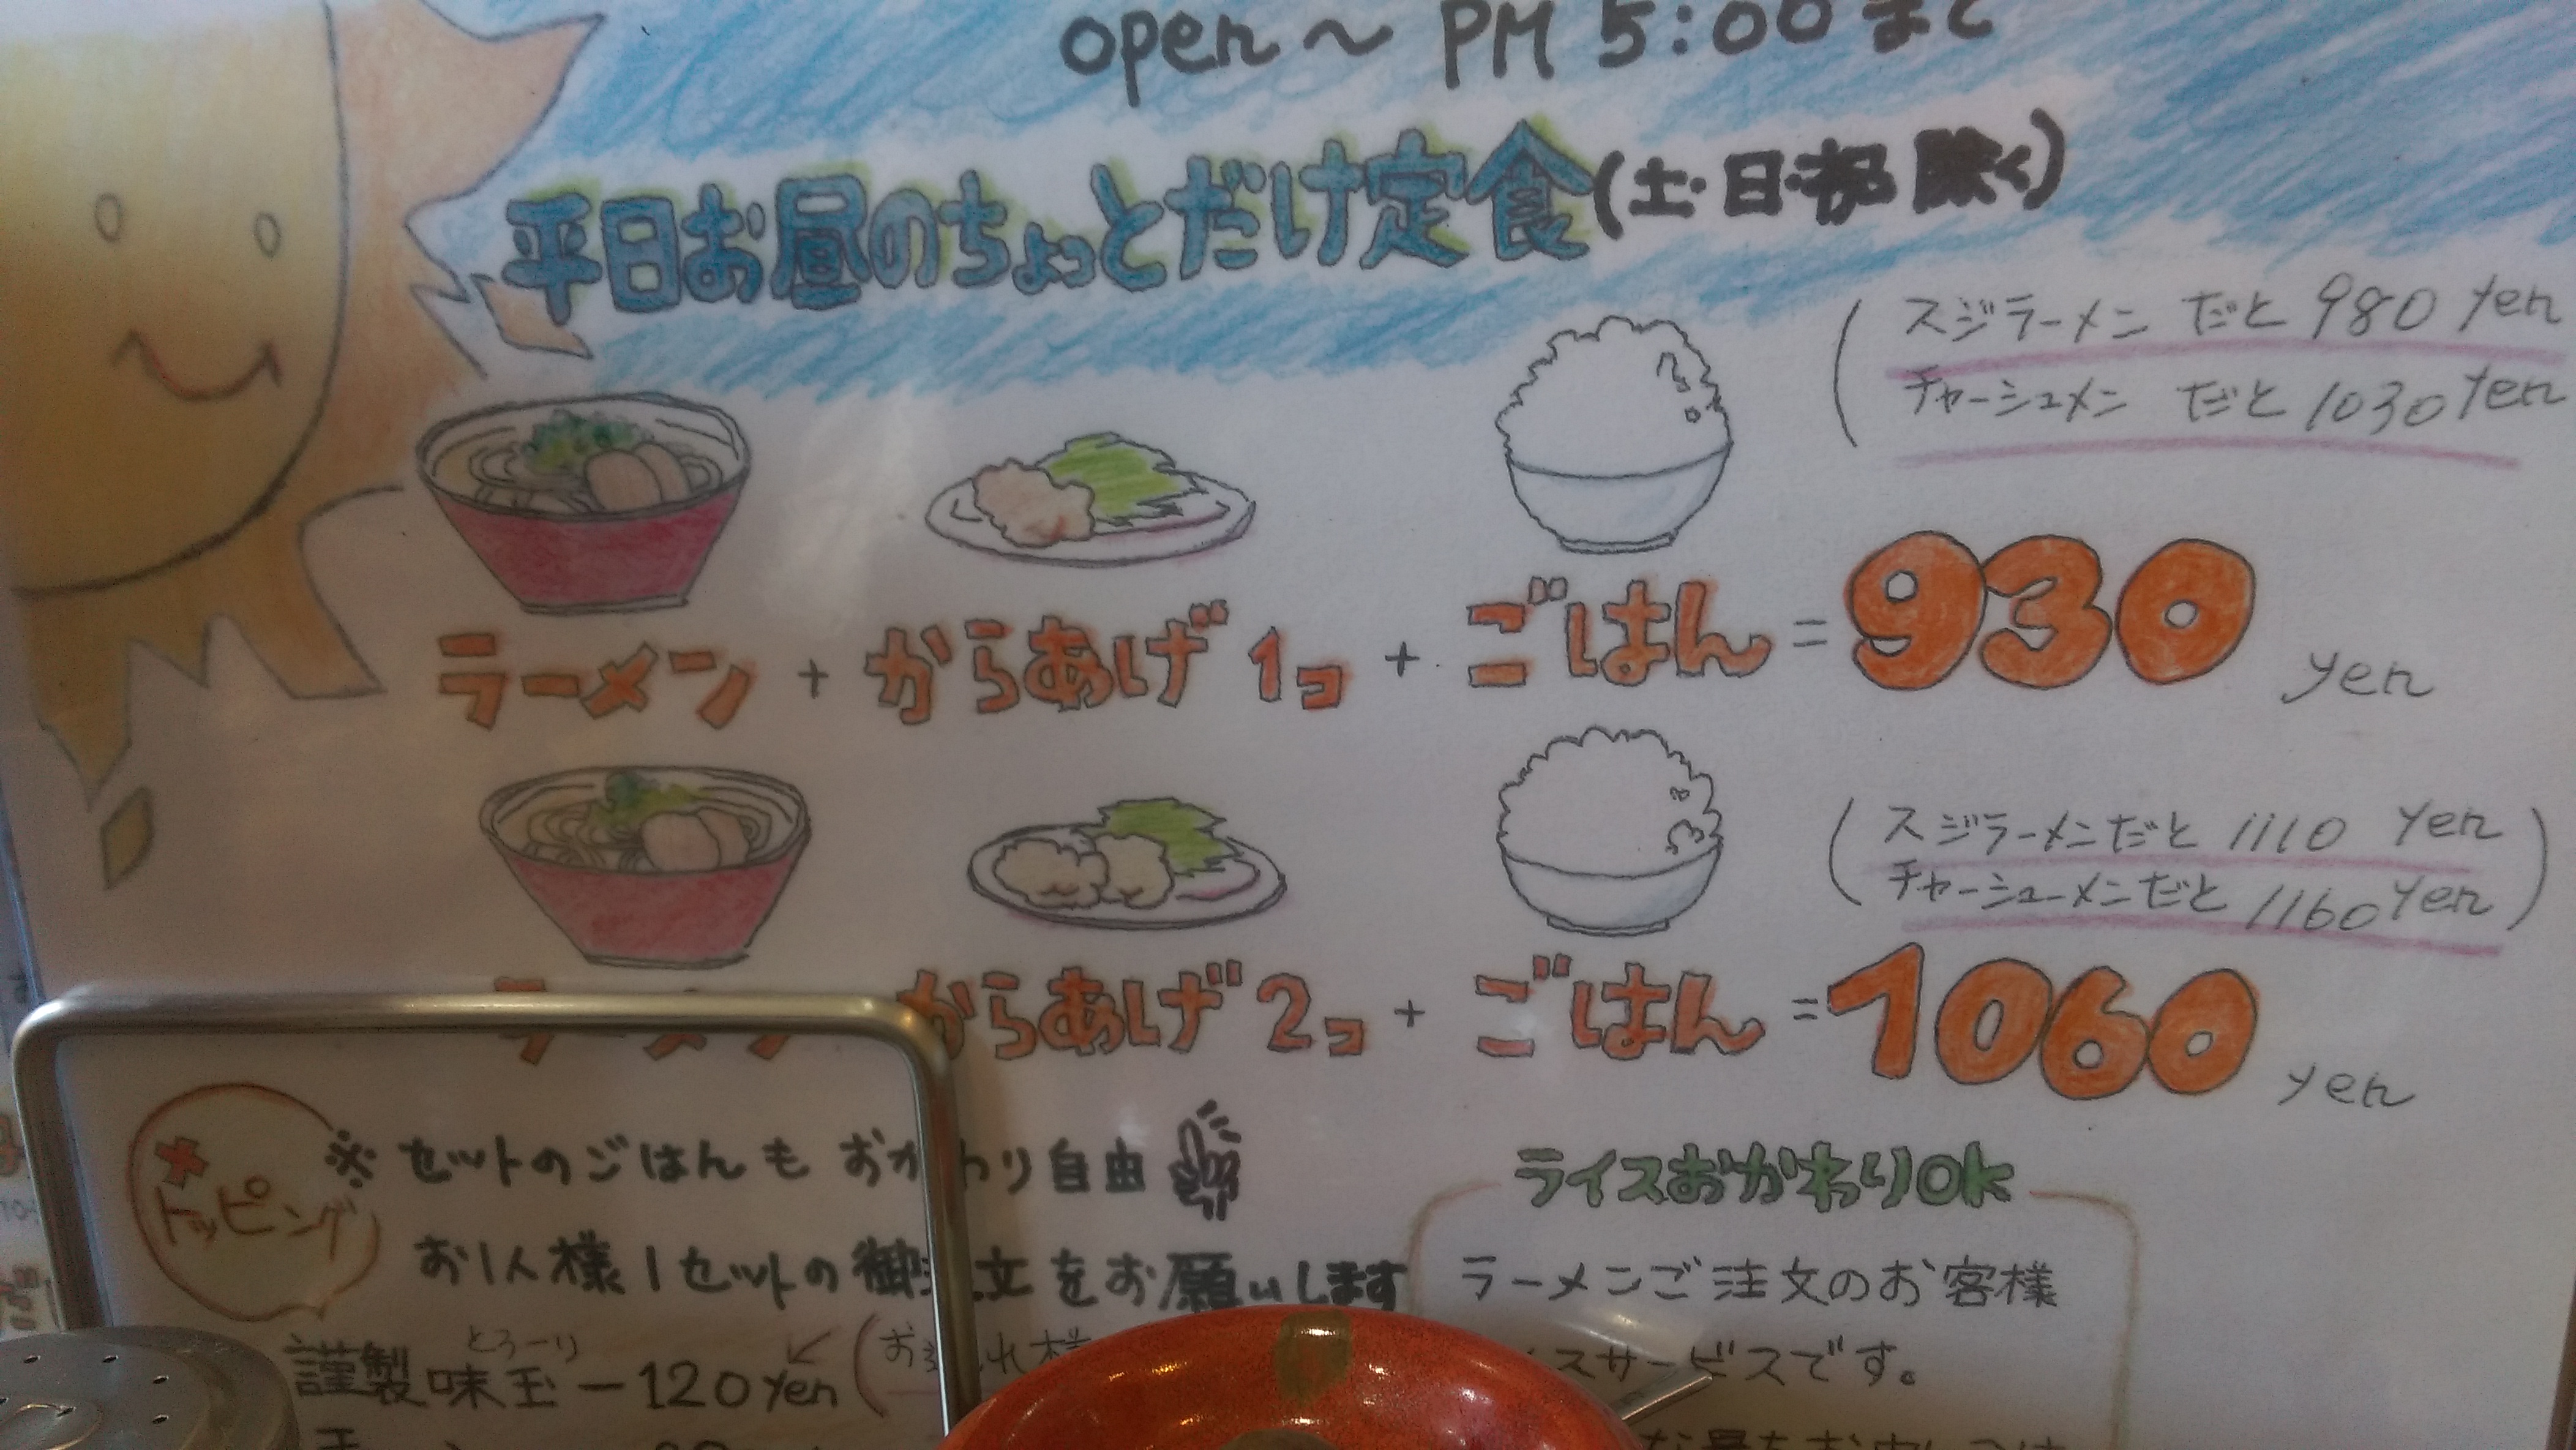 open～PM 5:00 まで
平日お昼のちょっとだけ定食(土・日・祝 除く)
(スジラーメン だと 980 Yen
チャーシュメン だと 1030 Yen
ラーメン + からあげ 1コ + ごはん = 930 yen
(スジラーメンだと 1110 Yen
チャーシューメンだと 1160 Yen)
ラーメン からあげ 2コ + ごはん = 1060 yen
※ セットのごはんも おかわり自由
お1人様1セットの御注文をお願いします
トッピング
とろーり
謹製味玉ー120yen
ライスおかわりOK
ラーメンご注文のお客様
イスサービスです。